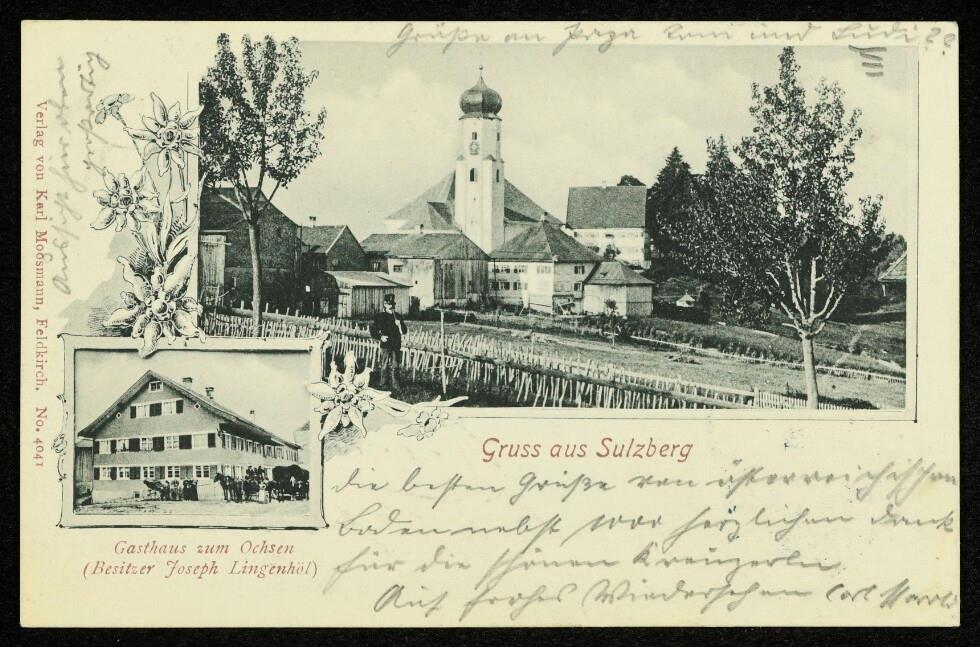 Grüße an Papa und Ludi
Verlag von Karl Moosmann, Feldkirch. No. 4041
Gruss aus Sulzberg
die besten Grüße von österreichischen
Boden nebst herzlichen Dank
für die schönen Kreuzerln
Auf frohes Wiedersehen Carl
Gasthaus zum Ochsen
(Besitzer Joseph Lingenhöl)